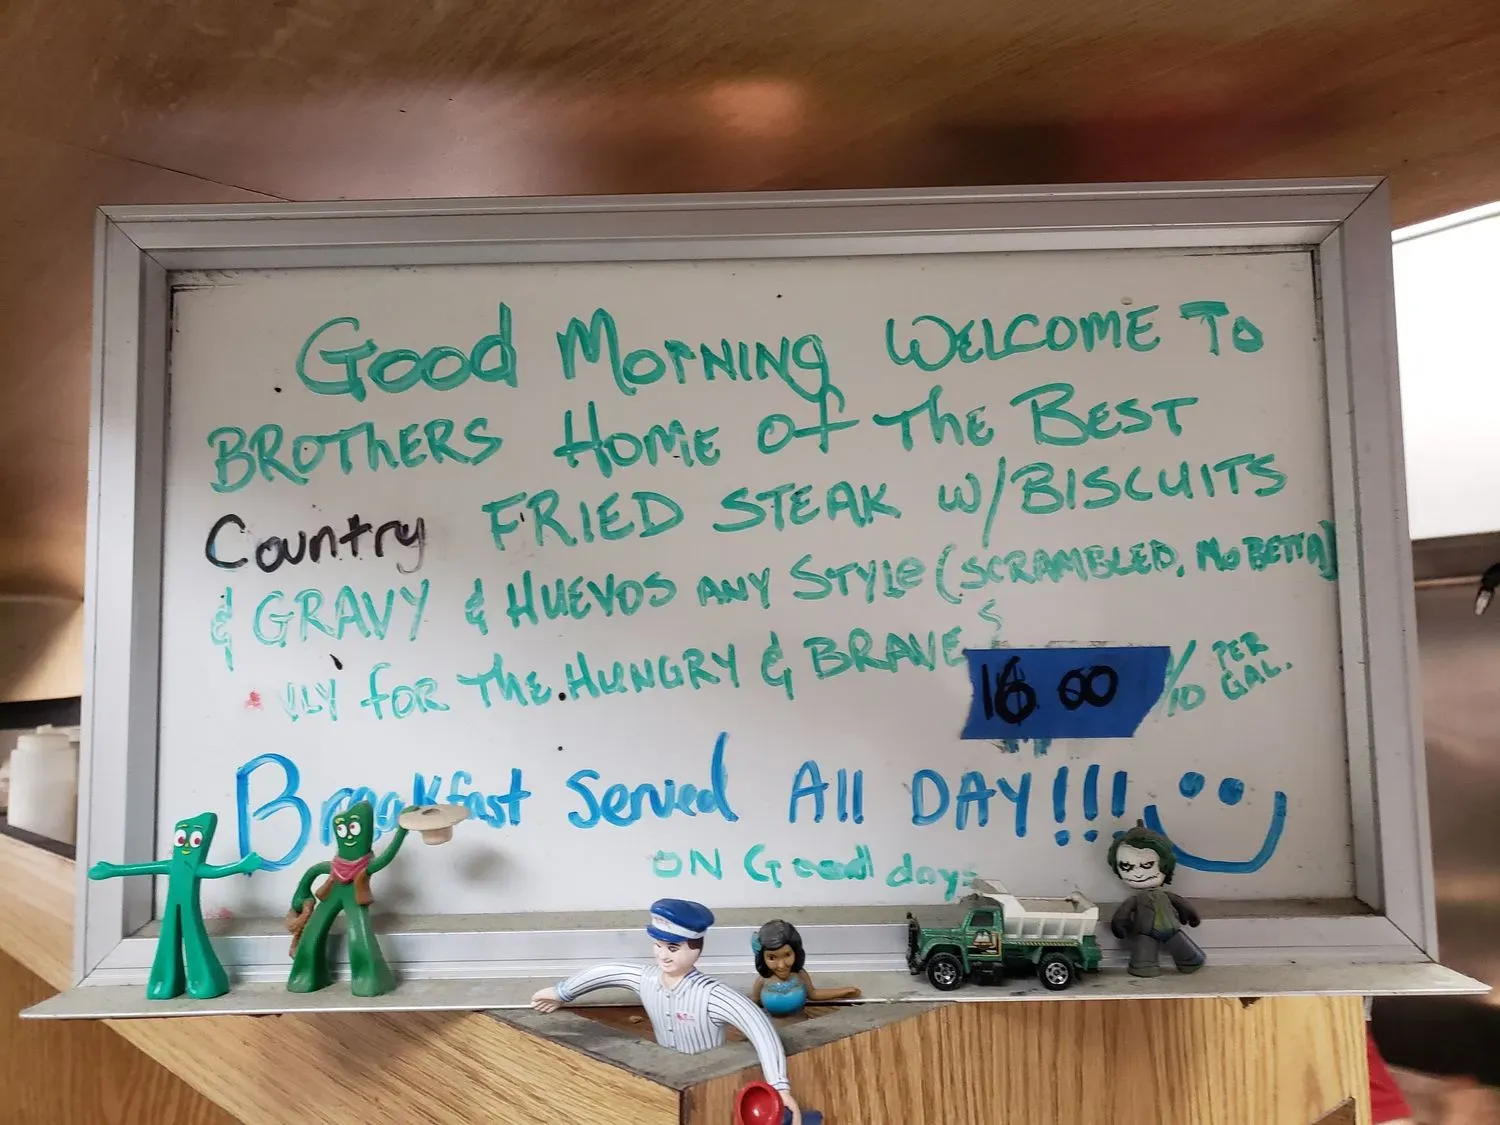 Good Morning Welcome To
Brothers Home of The Best
Country Fried Steak w/Biscuits
& Gravy & Huevos any Style (Scrambled, Mo Betta)
for The Hungry & Brave
16.00 /10 PER GAL.
Breakfast Served All DAY!!!
ON Good days